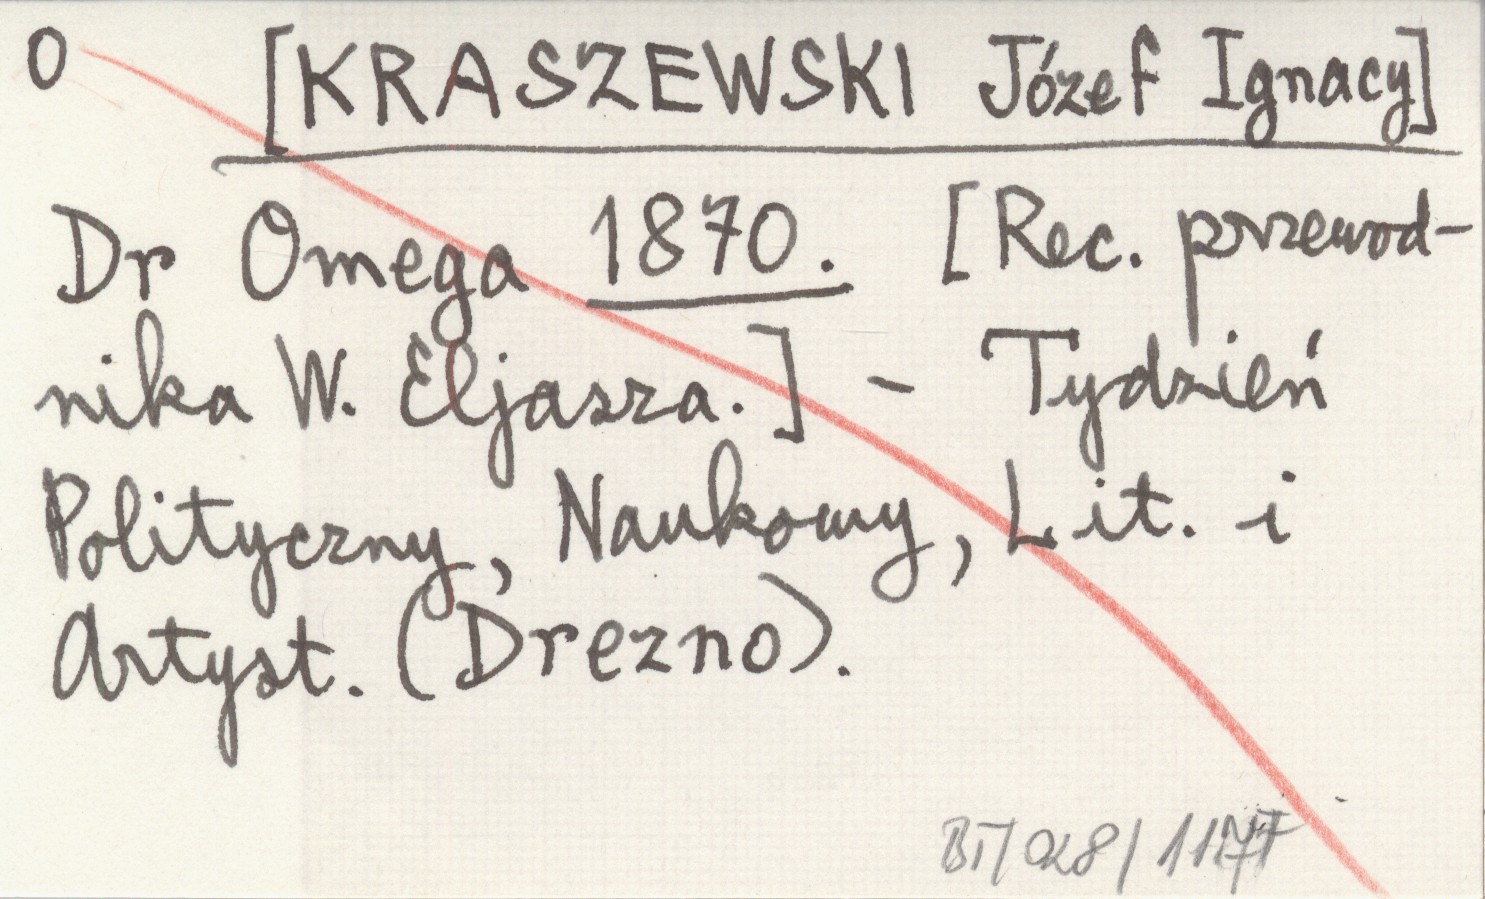 O [KRASZEWSKI Józef Ignacy]
Dr Omega 1870. [Rec. przewod-
nika W. Eljasza.] - Tydzień
Polityczny, Naukowy, Lit. i
Artyst. (Drezno).
BT/028/